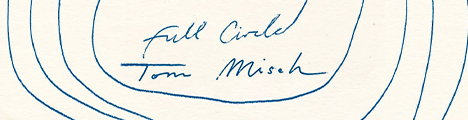 Full Circle
Tom Misch